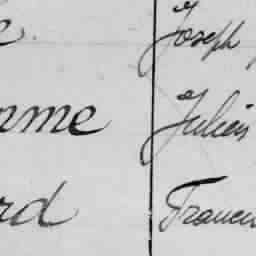 e. Joseph
mme Julien
rd Francis